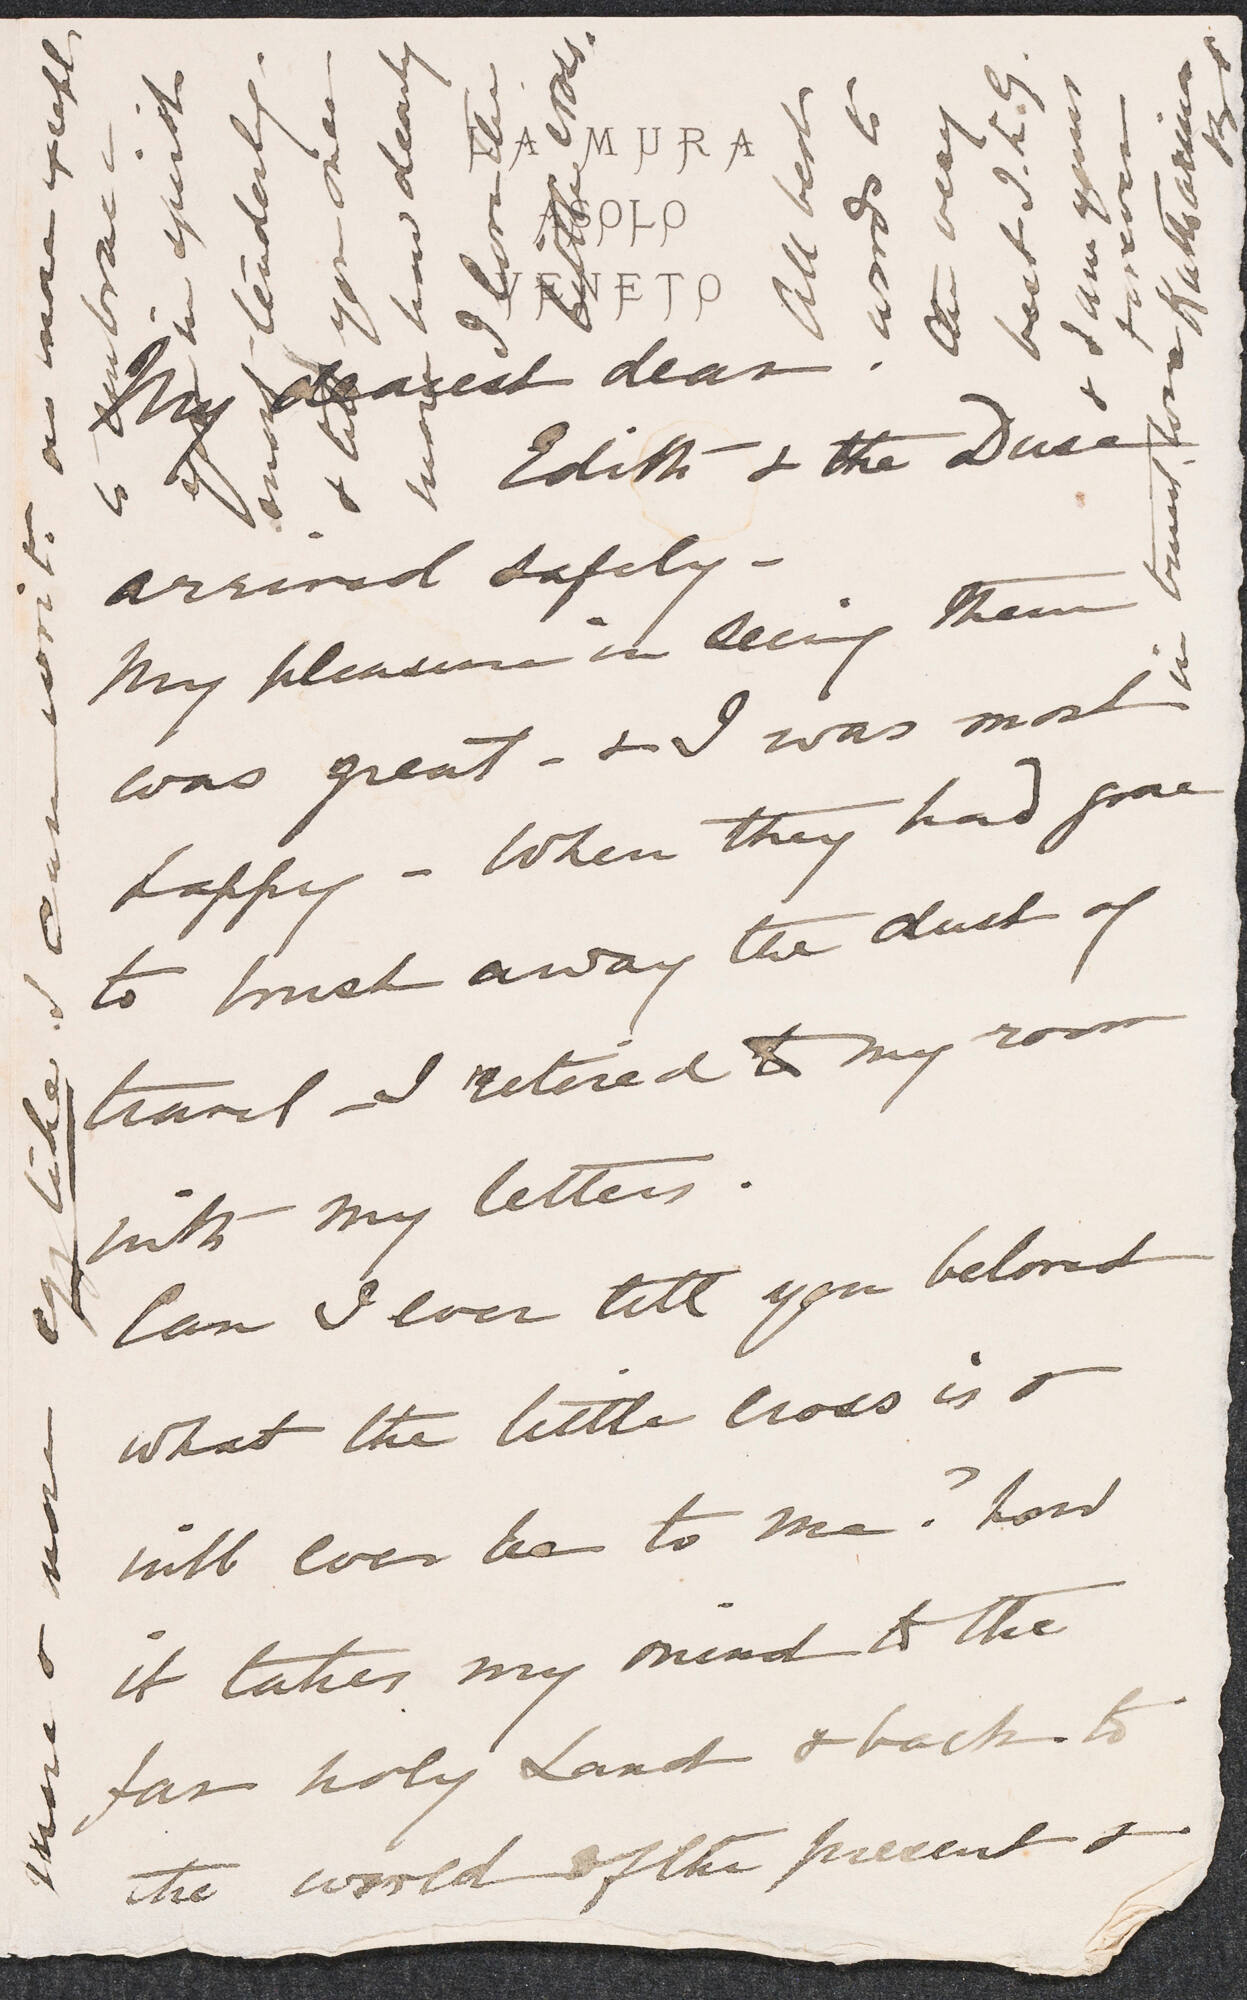 LA MURA
ASOLO
VENETO
My dearest dear.
Edith & the Duse
arrived safely -
My pleasure in seeing them
was great - & I was most
happy - When they had gone
to brush away the dust of
travel - I retired to my room
with my letters.
Can I ever tell you beloved
what the little cross is &
will ever be to me? how
it takes my mind to the
far holy Land & back to
the world of the present &
more & more egg like. I can write no more except
to embrace
you in spirit
most tenderly.
& tell you once
more how dearly
I love the
little cross.
All best
words to
the very
best I.S.G.
& I am yours
forever
in truest love
Katharine
Br